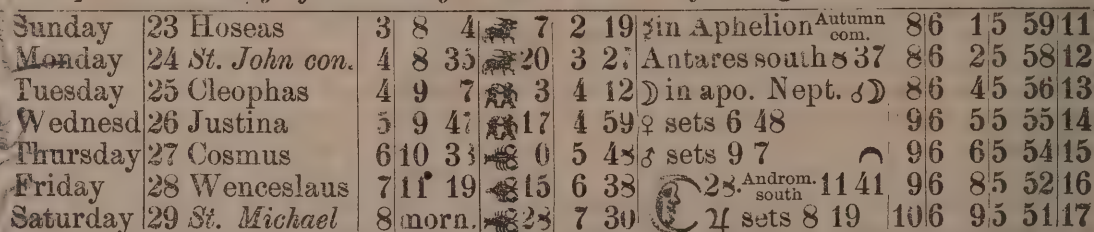 Sunday 23 Hoseas 3 8 4 7 2 19 ☿ in Aphelion Autumn com. 8 6 1 5 59 11
Monday 24 St. John con. 4 8 35 20 3 27 Antares south 8 37 8 6 2 5 58 12
Tuesday 25 Cleophas 4 9 7 3 4 12 ☽ in apo. Nept. ☌ ☽ 8 6 4 5 56 13
Wednesd 26 Justina 5 9 47 17 4 59 ♀ sets 6 48 9 6 5 5 55 14
Thursday 27 Cosmus 6 10 33 0 5 48 ♂ sets 9 7 9 6 6 5 54 15
Friday 28 Wenceslaus 7 11 19 15 6 38 28. Androm. south 11 41 9 6 8 5 52 16
Saturday 29 St. Michael 8 morn. 28 7 30 ♃ sets 8 19 10 6 9 5 51 17